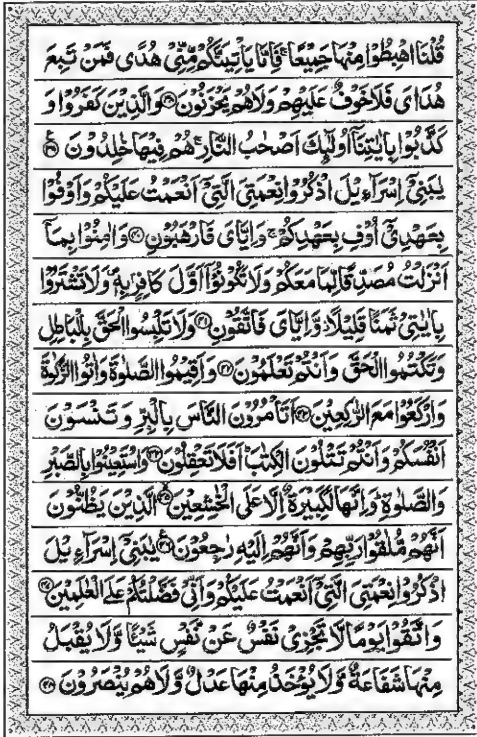 قُلْنَا اهْبِطُوْا مِنْهَا جَمِيْعًا ۚ فَاِمَّا يَاْتِيَنَّكُمْ مِّنِّيْ هُدًى فَمَنْ تَبِعَ
هُدَايَ فَلَا خَوْفٌ عَلَيْهِمْ وَلَا هُمْ يَحْزَنُوْنَ ﴿۳۸﴾ وَالَّذِيْنَ كَفَرُوْا وَ
كَذَّبُوْا بِاٰيٰتِنَآ اُولٰٓئِكَ اَصْحٰبُ النَّارِ ۚ هُمْ فِيْهَا خٰلِدُوْنَ ﴿۳۹﴾
يٰبَنِيْٓ اِسْرَآءِيْلَ اذْكُرُوْا نِعْمَتِيَ الَّتِيْٓ اَنْعَمْتُ عَلَيْكُمْ وَاَوْفُوْا
بِعَهْدِيْٓ اُوْفِ بِعَهْدِكُمْ ۚ وَاِيَّايَ فَارْهَبُوْنِ ﴿۴۰﴾ وَاٰمِنُوْا بِمَآ
اَنْزَلْتُ مُصَدِّقًا لِّمَا مَعَكُمْ وَلَا تَكُوْنُوْٓا اَوَّلَ كَافِرٍۭ بِهٖ ۪ وَلَا تَشْتَرُوْا
بِاٰيٰتِيْ ثَمَنًا قَلِيْلًا ۫ وَّاِيَّايَ فَاتَّقُوْنِ ﴿۴۱﴾ وَلَا تَلْبِسُوا الْحَقَّ بِالْبَاطِلِ
وَتَكْتُمُوا الْحَقَّ وَاَنْتُمْ تَعْلَمُوْنَ ﴿۴۲﴾ وَاَقِيْمُوا الصَّلٰوةَ وَاٰتُوا الزَّكٰوةَ
وَارْكَعُوْا مَعَ الرّٰكِعِيْنَ ﴿۴۳﴾ اَتَاْمُرُوْنَ النَّاسَ بِالْبِرِّ وَتَنْسَوْنَ
اَنْفُسَكُمْ وَاَنْتُمْ تَتْلُوْنَ الْكِتٰبَ ۭ اَفَلَا تَعْقِلُوْنَ ﴿۴۴﴾ وَاسْتَعِيْنُوْا بِالصَّبْرِ
وَالصَّلٰوةِ ۭ وَاِنَّهَا لَكَبِيْرَةٌ اِلَّا عَلَى الْخٰشِعِيْنَ ﴿۴۵﴾ الَّذِيْنَ يَظُنُّوْنَ
اَنَّهُمْ مُّلٰقُوْا رَبِّهِمْ وَاَنَّهُمْ اِلَيْهِ رٰجِعُوْنَ ﴿۴۶﴾ يٰبَنِيْٓ اِسْرَآءِيْلَ
اذْكُرُوْا نِعْمَتِيَ الَّتِيْٓ اَنْعَمْتُ عَلَيْكُمْ وَاَنِّيْ فَضَّلْتُكُمْ عَلَى الْعٰلَمِيْنَ ﴿۴۷﴾
وَاتَّقُوْا يَوْمًا لَّا تَجْزِيْ نَفْسٌ عَنْ نَّفْسٍ شَيْئًا وَّلَا يُقْبَلُ
مِنْهَا شَفَاعَةٌ وَّلَا يُؤْخَذُ مِنْهَا عَدْلٌ وَّلَا هُمْ يُنْصَرُوْنَ ﴿۴۸﴾